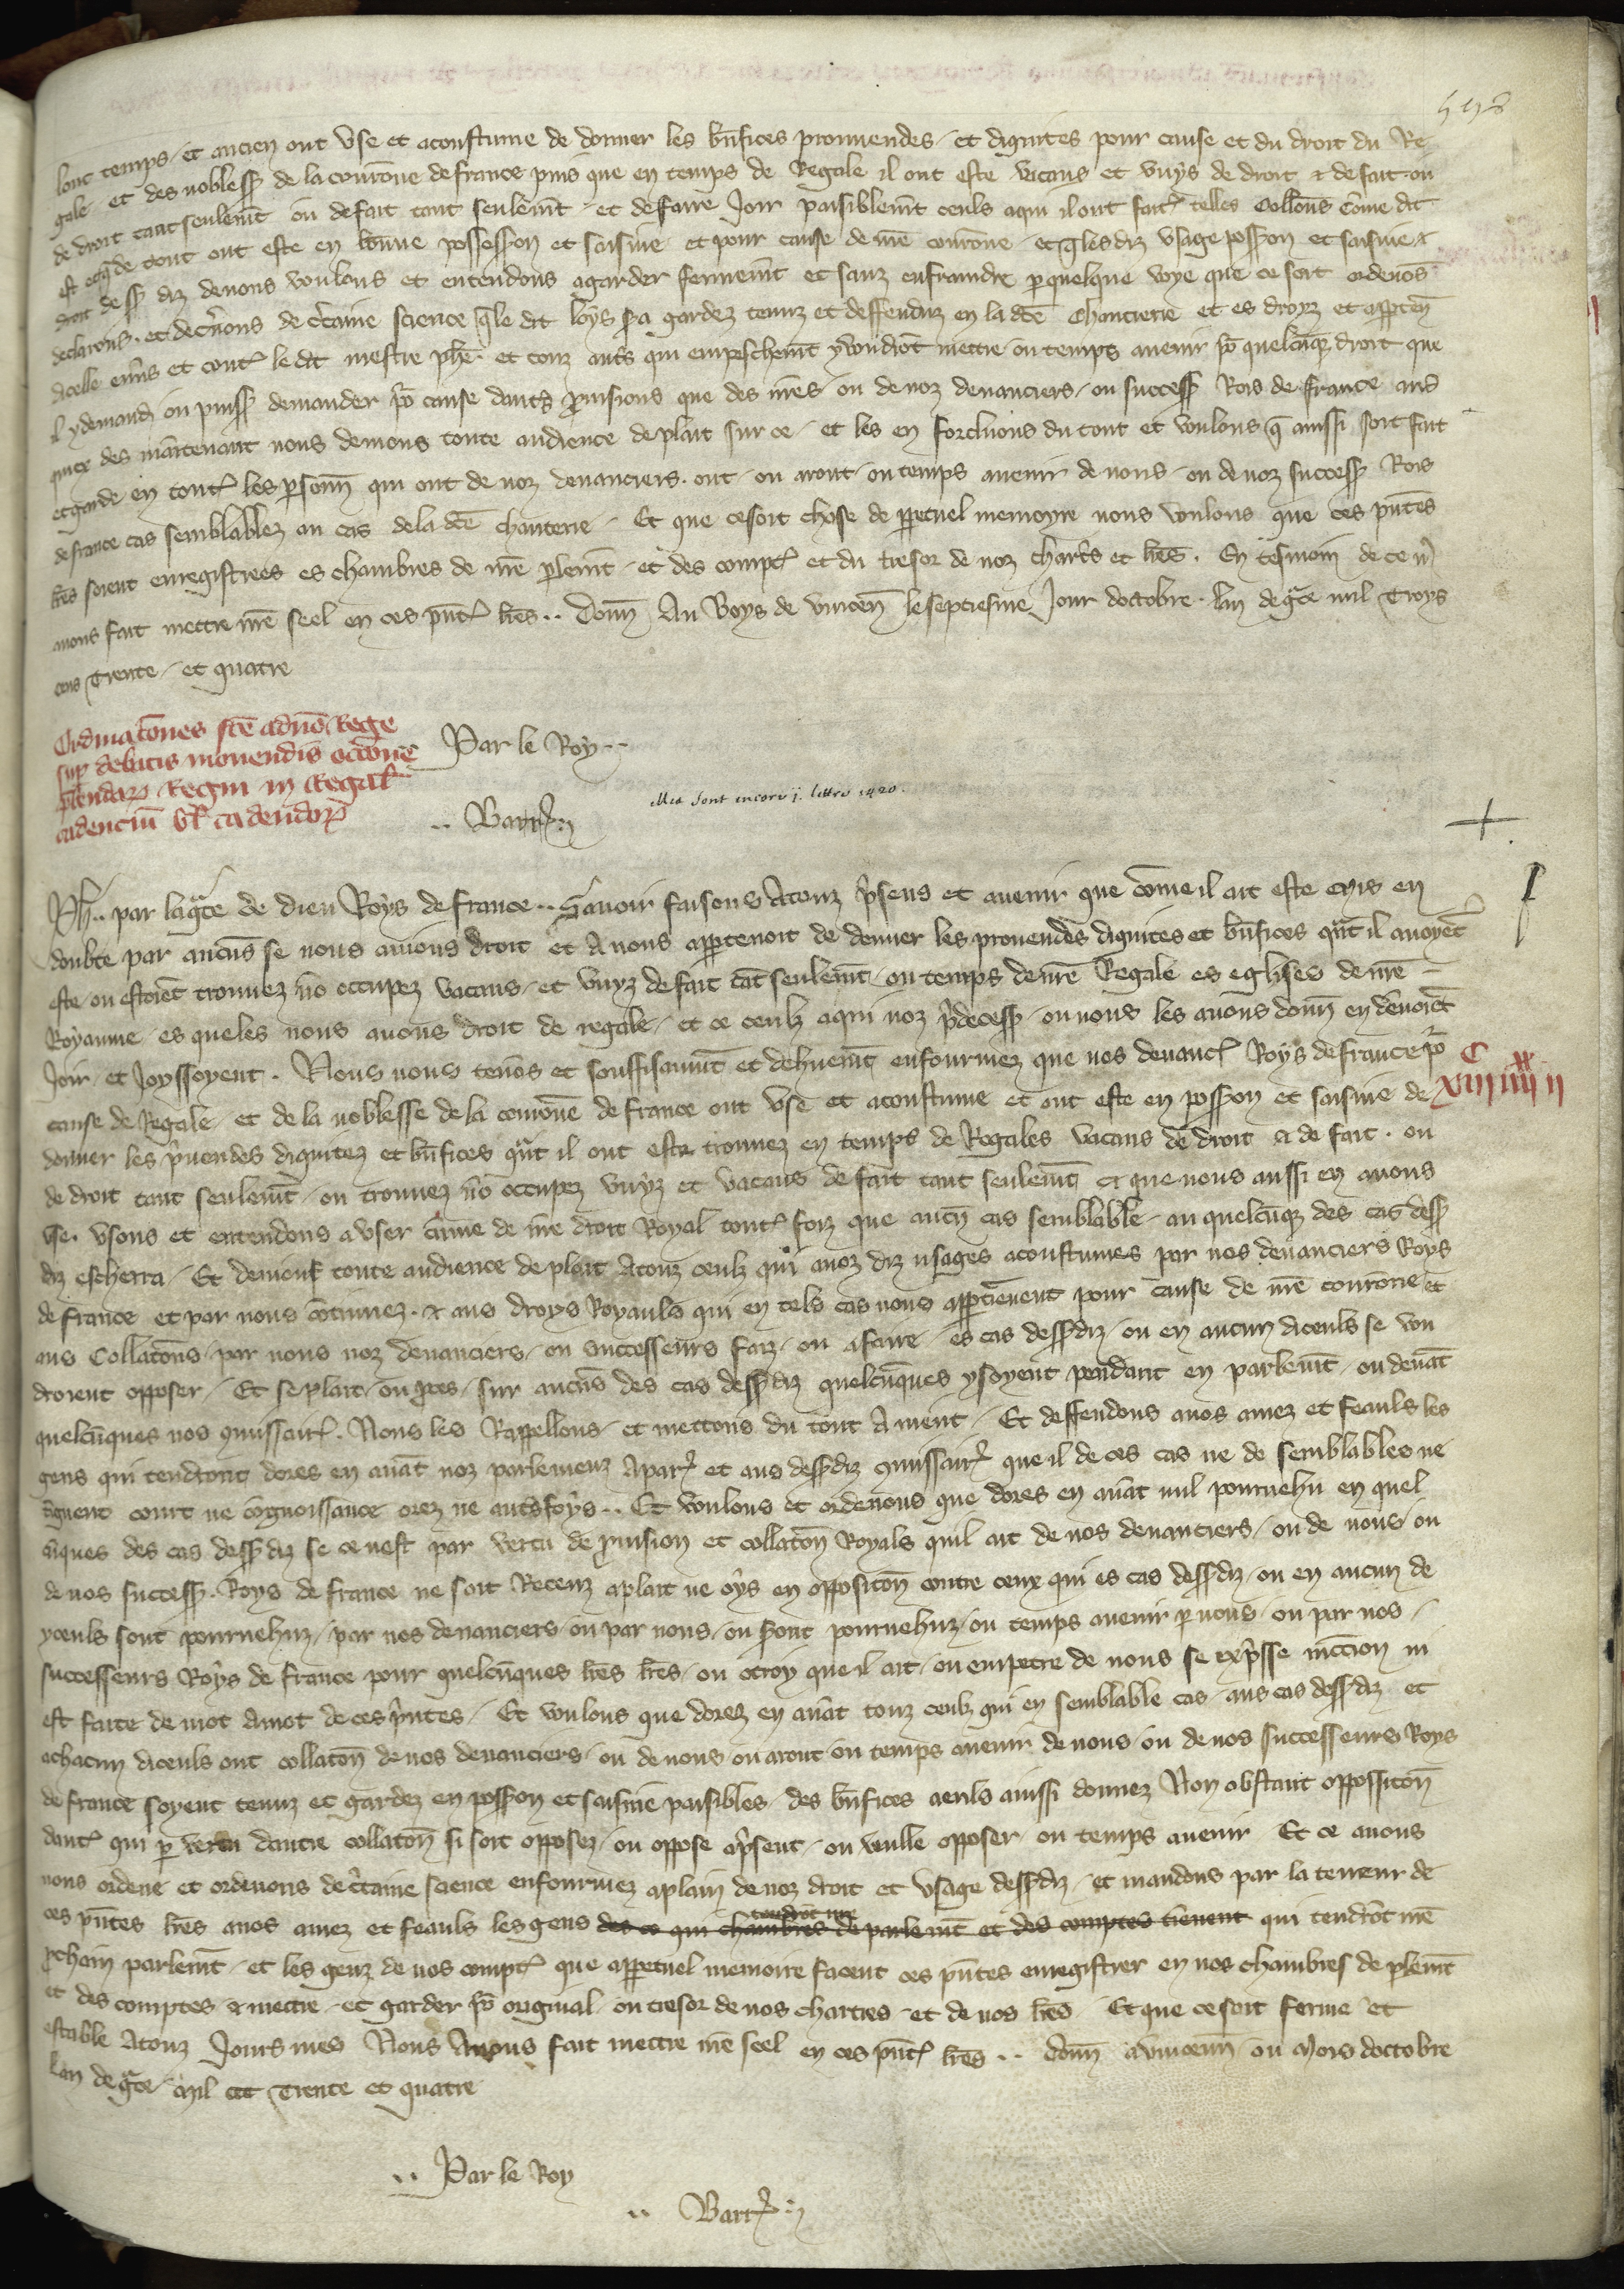 lonc temps / et ancien ont vse et acoustume de donner les bn̄fices prouuendes / et dignites pour cause et du droit du Re
gale / et des nobless̄ de la courōne de france puis que en temps de Regale il ont este vacans et vuys de droit & de fait / ou
de droit tant seulemīt ou de fait tant seulemīt et de faire Joir paisiblemīt ceuls a qui il ont fait telles Collōns cōme dit
est et de tout ont este en bonne possession et saisine et pour cause de nr̄e courōne et q̄ les diz vsage poss̄ion et saisine &
droit dess̄ diz deuons voulons et entendons a garder fermemīt et sanz enfraindre p̱ quelque voye que ce soit ordenōs
declarons / et decn̄ons de c̄taine science q̄ le dit loys s̄a gardez tenuz et deffenduz en la dc̄e Chanterie et es droyz et app̱ten̄
dicelle enūs et cont̄ le dit mestre ph̄e et touz aut̄s qui empeschemīt y voudrōt mettre ou temps auenir p̄o quelcūq̄ droit que
il y demand̄ ou puiss̄ demander p̄o cause dautͤs p̄uisions que des nr̄es / ou de noz deuanciers / ou success̄ Rois de france aus
quiex des maintenant nous denions toute audience de plait sur ce / et les en forcluons du tout et voulons q̄ ainssi soit fait
et garde en tout̄ les p̱sonn̄ qui ont de noz deuanciers / ont / ou aront / ou temps auenir de nous / ou de noz success̄ Rois
de france cas semblablez au cas de la dc̄e chanterie / Et que ce soit chose de p̱petuel memoyre nous voulons que ces pn̄tes
lr̄es soient enregistrees es chambres de nr̄e p̱lemīt / et des compt̄ et du tresor de noz charts̄ et lr̄es. En tesmoin de ce nꝰ
auons fait mettre nr̄e seel en ces pn̄t̄ lr̄es .. Donn̄ Au Boys de vincen̄ le septiesme Jour doctobre / lan de gr̄ce mil Troys
cens Trente / et quatre
Ordinatōnes fc̄e a dn̄o Rege
sup̱ debatis mouendis occōne
p̄bendar̄ Regni in Regal̄
cadenciū vl̄ cadendor̄
Par le Roy ..
.. Barr̄
Ph̄.. par la gr̄ce de dieu Roys de france .. Sauoir faisons A touz p̄sens et auenir que cōme il ait este mis en
doubte par aucūs se nous auions droit et A nous app̱tenoit de donner les prouendes dignites et bn̄fices qn̄t il auoyēt
este / ou estoiēt trouuez nō occupez vacans / et vuyz de fait tāt seulemīt / ou temps de nr̄e Regale es eglises de nr̄e
Royaume / es queles nous auons droit de regale / et ce ceulz a qui noz p̄decess̄ / ou nous les auons donn̄ en deuoiēt
Joir / et Joyssoyent . Nous nous tenōs et souffisaumīt et dehuemīt enfourmez que nos deuanc̄ Roys de france p̄o
C XX
XIII IIII II
cause de Regale / et de la noblesse de la courōne de france ont vse et acoustume et ont este en poss̄ion et saisine de
donner les p̄uendes dignitez et bn̄fices qn̄t il ont este trouuez en temps de Regales vacans de droit & de fait . ou
de droit tant seulemīt / ou trouuez nō occupez vuyz et vacans de fait tant seulemīt et que nous aussi en auons
vse . vsons et entendons a vser cūme de nr̄e droit Royal tout̄ foiz que aucū cas semblable / au quelcūq̄ des cas dess̄
diz escherra / Et denions toute audience de plait A touz ceulz qui a noz diz vsages acoustumes par nos deuanciers Roys
de france et par nous cōtinuez / & aus droys Royauls qui en tels cas nous app̱tienent pour cause de nr̄e courōne et
aus Collatōns / par nous noz deuanciers / ou successeurs faiz / ou a faire / es cas dess̄ diz / ou en aucun diceuls se vou
droient opposer / Et se plait / ou p̱ces / sur aucūs des cas dess̄ diz quelcūques y soyent pendant en parlemīt / ou deuāt
quelcūques nos cmissair̄ . Nous les Rappellons / et mettons du tout A nient / Et deffendons a nos amez et feauls les
gens qui tendront dores en auāt noz parlemenz A par̄ et aus dess̄ diz cmissair̄ que il de ces cas ne de semblables ne
tiēgnent court ne cōgnoissance orez ne autͤs foys .. Et voulons et ordenons que dores en auāt nul pouruehu en quel
cūques des cas dess̄ diz se ce nest par vertu de p̱uision et collatōn Royals quil ait de nos deuanciers / ou de nous / ou
de nos success̄ . Roys de france ne soit Receuz a plait ne oys en oppositōn contre ceux qui es cas dess̄ diz / ou en aucun de
yceuls sont pouruehuz / par nos deuanciers / ou par nous / ou s̄ont pouruehuz / ou temps auenir p̱ nous / ou par nos /
successeurs Roys de france pour quelcūques lr̄es / ou otroy que il ait / ou empetre de nous se exp̄sse mēcion ni
est faite de mot a mot de ces p̄ntes / Et voulons que dorez en auāt touz ceulz qui en semblable cas / aus cas dess̄ diz et
a chacun diceuls ont collatōn de nos deuanciers / ou de nous / ou aront / ou temps auenir de nous / ou de nos successeurs Roys
de france soyent tenuz et gardez en poss̄ion et saisine paisibles / des bn̄fices a euls ainssi donnez Non obstant oppositōn
daut̄ qui p̱ vertu dautre collatōn si soit opposez / ou oppose a p̄sent / ou veulle opposer / ou temps auenir / Et ce auons
nous ordene et ordenons de c̄taine science enfourmez a plain de noz droit et vsage dess̄ diz / et mandons par la teneur de
ces pn̄tes lr̄es a nos amez et feauls les gens des ce qui chambres de parlemīt et des comptes tienent qui tendrōt nr̄e
p̱chain parlemīt / et les genz de nos compt̄ que a p̱petuel memoire facent ces pn̄tes enregistrer en nos chambres de p̱lemīt
et des comptes & mettre / et garder p̄o original / ou tresor de nos chartres / et de nos lr̄es / Et que ce soit ferme et
estable A touz Jours mes Nous Auons fait mettre nr̄e seel en ces pn̄t̄ lr̄es .. Donn̄ a vincenn̄ ou Mois doctobre
Lan de gr̄ce mil CCC Trente et quatre
.. Par le Roy
.. Barr̄